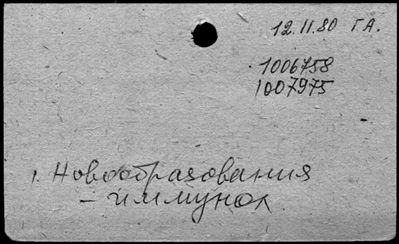 12.11.80 ГА.
1006758
1007975
1. Новообразования
– иммунол